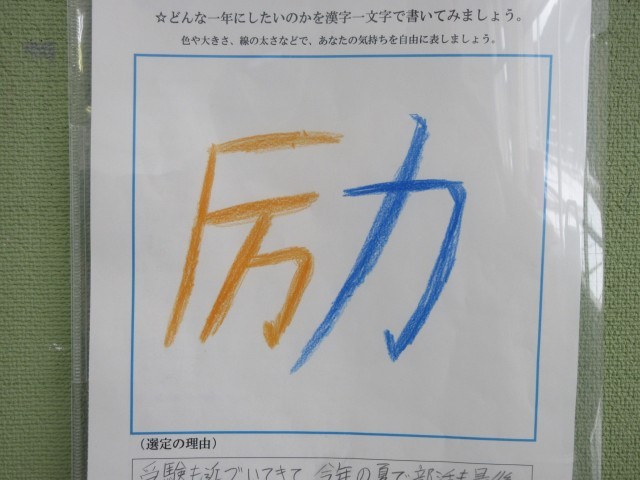 ☆どんな一年にしたいのかを漢字一文字で書いてみましょう。
色や大きさ、線の太さなどで、あなたの気持ちを自由に表しましょう。
励
(選定の理由)
受験も近づいてきて、今年の夏で部活も最後